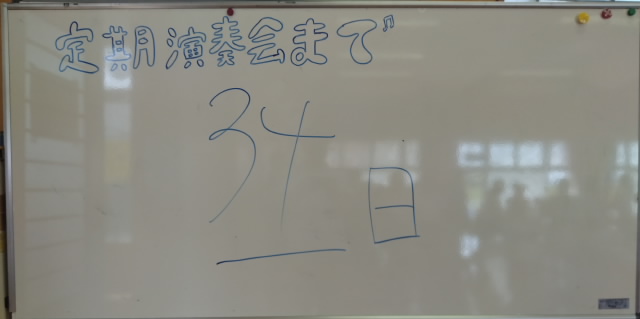 定期演奏会まで♫
34日